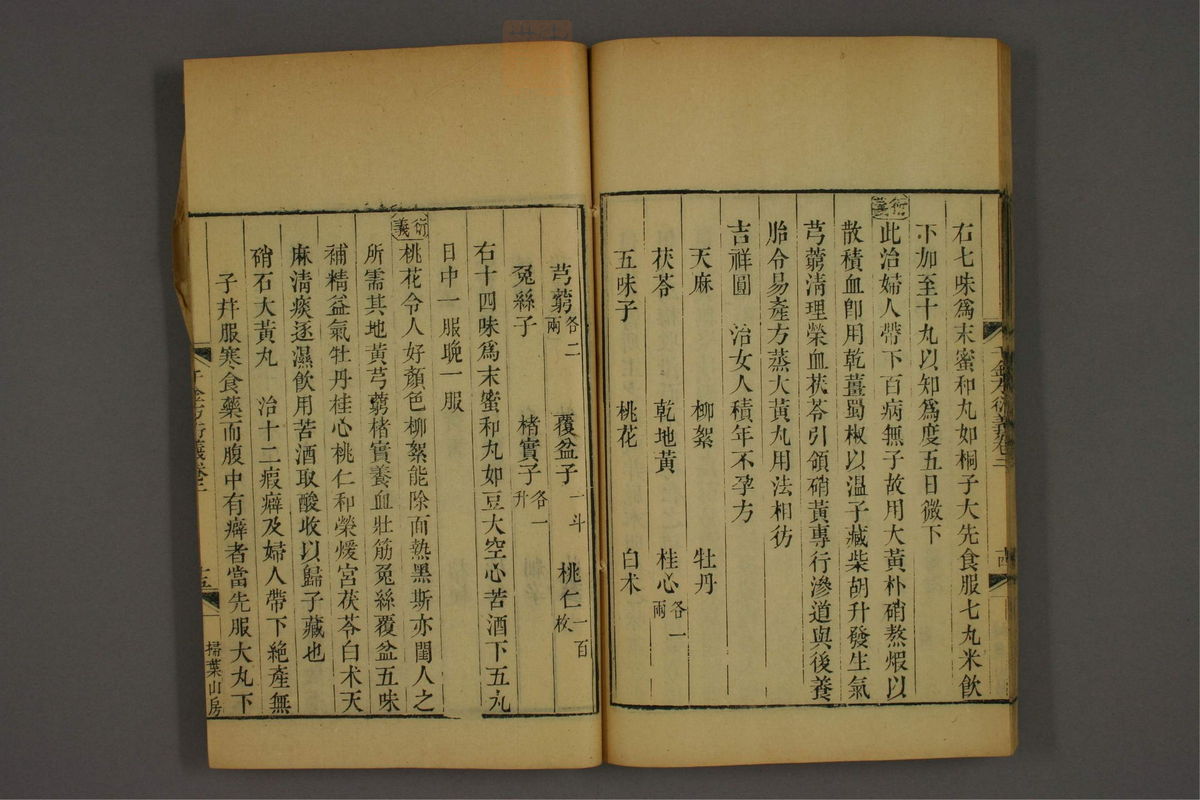 右七味爲末蜜和丸如桐子大先食服七丸米飲
下加至十丸以知爲度五日微下
衍義
此治婦人帶下百病無子故用大黃朴硝熬煆以
散積血卽用乾薑蜀椒以温子藏柴胡升發生氣
芎藭清理榮血茯苓引領硝黃專行滲道與後養
胎令易產方蒸大黃丸用法相彷
吉祥圓 治女人積年不孕方
天麻 柳絮 牡丹
茯苓 乾地黃 桂心各一兩
五味子 桃花 白朮
千金方衍義卷三
四
芎藭各二兩 覆盆子一斗 桃仁一百枚
兔絲子 楮實子各一升
右十四味爲末蜜和丸如豆大空心苦酒下五丸
日中一服晚一服
衍義
桃花令人好顏色柳絮能除面熱黑斯亦閨人之
所需其地黃芎藭楮實養血壯筋兔絲覆盆五味
補精益氣牡丹桂心桃仁和榮煖宮茯苓白朮天
麻淸痰逐濕飲用苦酒取酸收以歸子藏也
硝石大黃丸 治十二瘕癖及婦人帶下絶產無
子幷服寒食藥而腹中有癖者當先服大丸下
千金方衍義卷三
掃葉山房